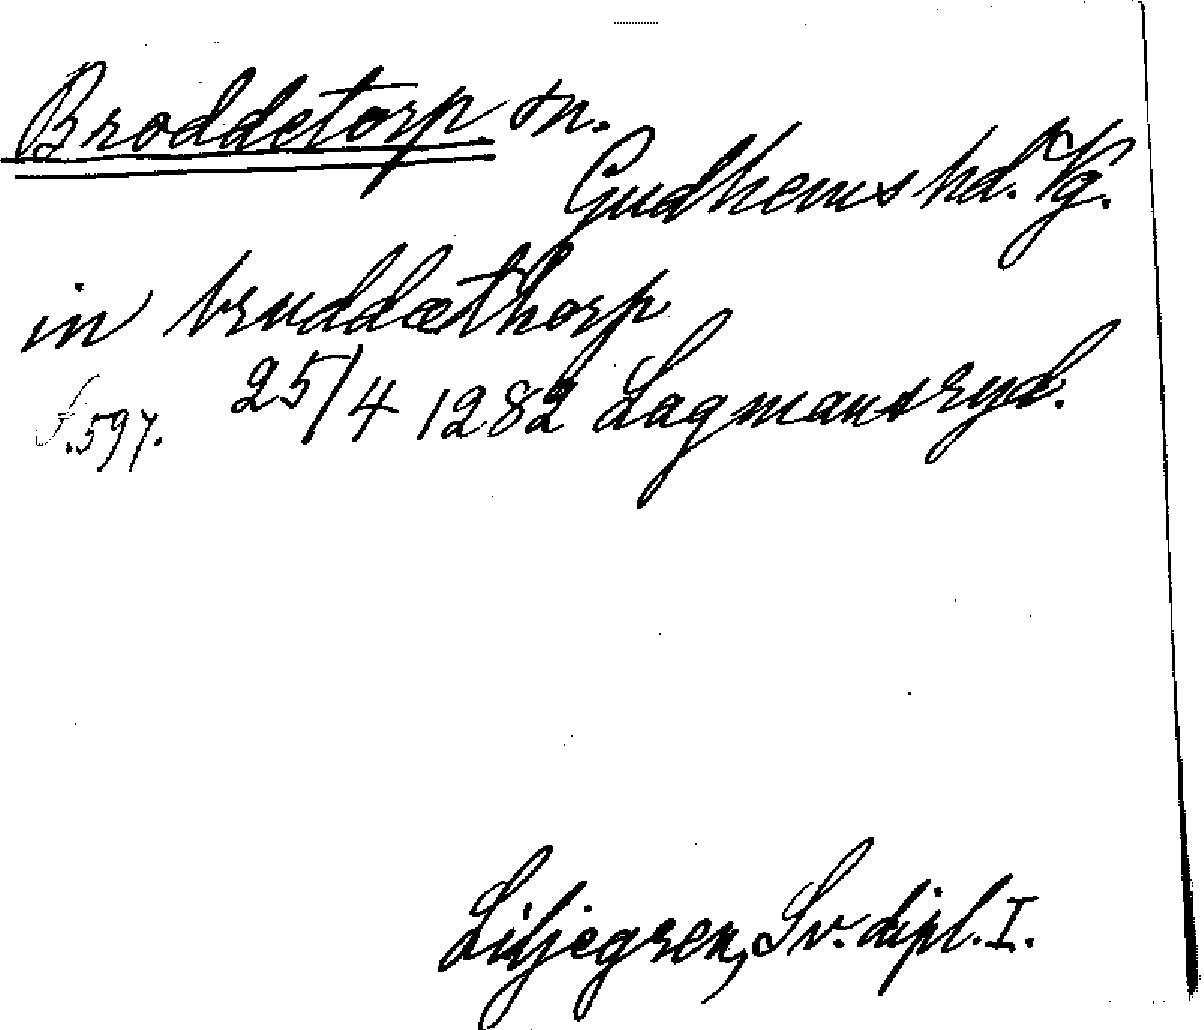 Broddetorp sn.
Gudhems hd. Vg.
in bruddæthorp
s. 597. 25/4 1282 Lagmansryd.
Liljegren, Sv. dipl. I.